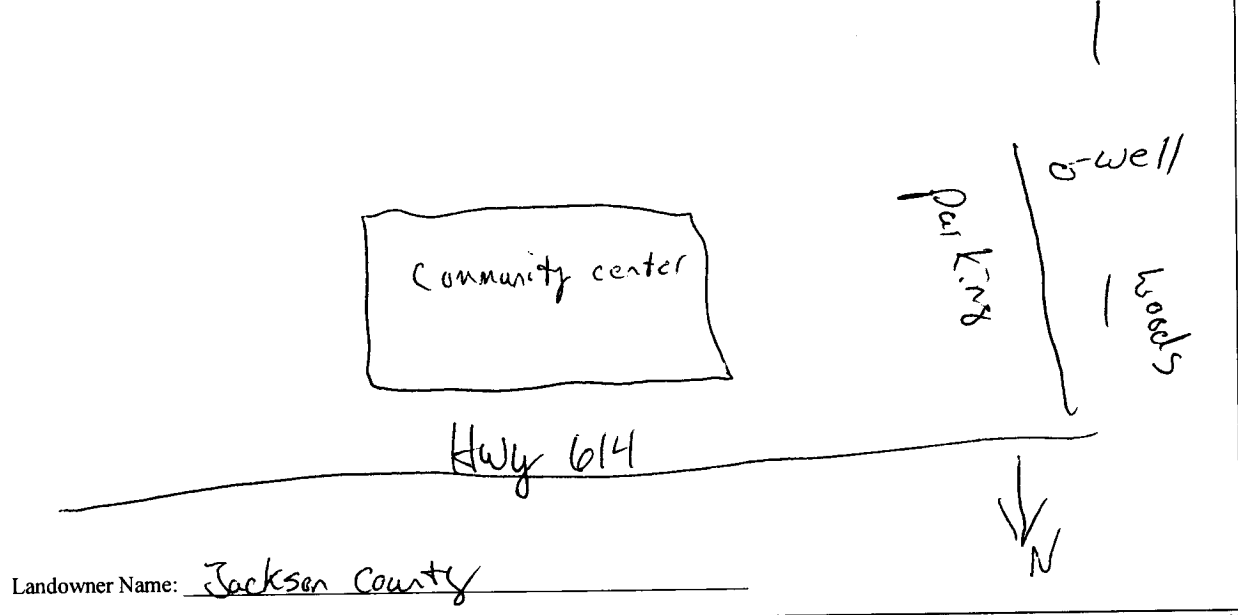 o-well
parking
Community center
woods
Hwy 614
N
Landowner Name: Jackson County